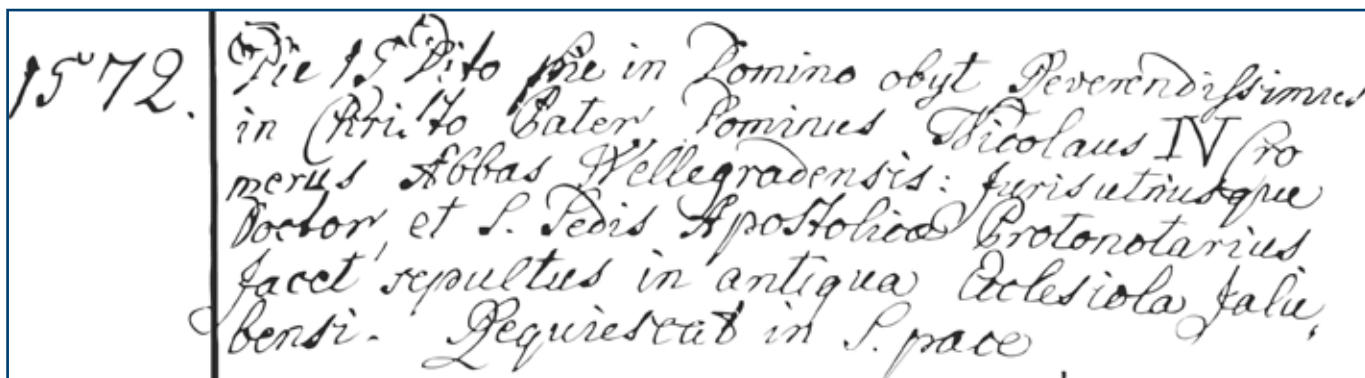 1572.
Die 15 Dito pie in Domino obyt Reverendissimus
in Christo Pater Dominus Nicolaus IV Cro
merus Abbas Wellegradensis: Jurisutriusque
Doctor, et S. Sedis Apostolicæ Protonotarius
Jacet sepultus in antiqua Ecclesiola Jalu,
bensi. Requiescat in S. pace